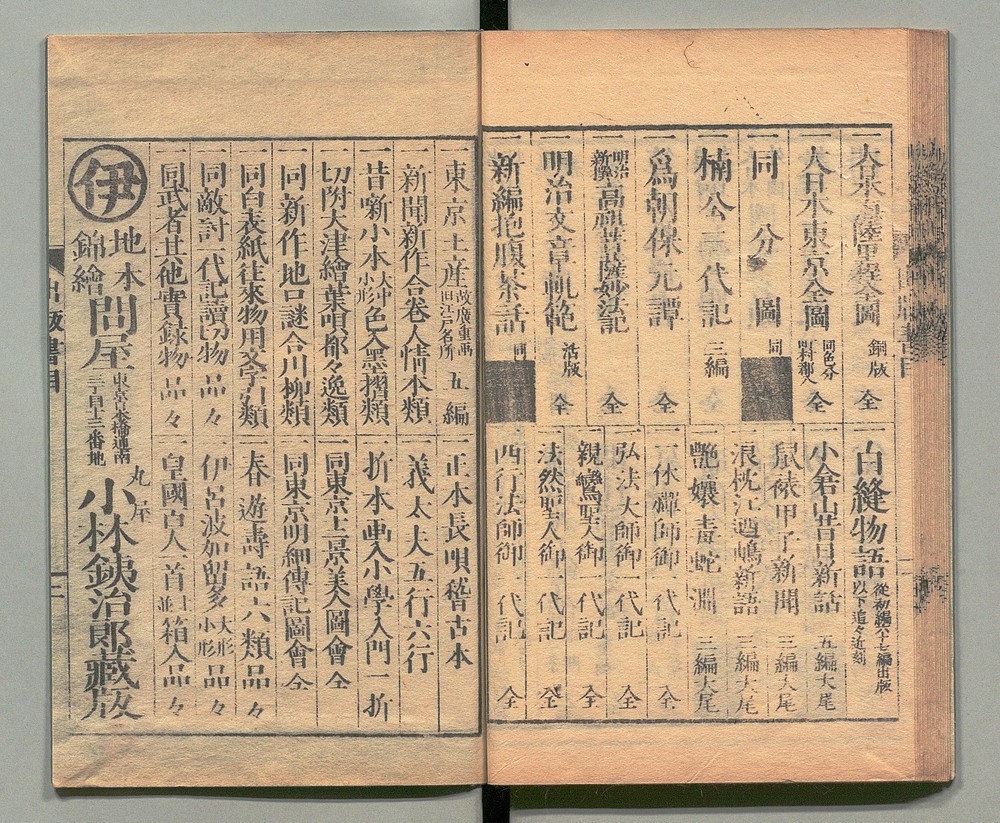 大日本海陸里程全圖 銅版 全
大日本東京全圖 同色分 全
同 分 圖 同
楠公三代記 三編 全
爲朝保元譚 全
明治新撰 高祖菩薩妙法記 全
明治文章軌範 活版 全
新編抱腹茶話 同
白縫物語 從初編六十七編出版 以下追々近刻
小倉山昔日新話 五編大尾
鼠裱甲子新聞 三編大尾
浪枕江の嶋新語 三編大尾
艶孃毒蛇淵 三編大尾
一休禪師御一代記 全
弘法大師御一代記 全
親鸞聖人御一代記 全
法然聖人御一代記 全
西行法師御一代記 全
東京土産 故廣重画 旧江戸名所 五編
一新聞新作合卷人情本類
一昔噺小本 大中小形 色入墨摺類
一切附大津繪葉唄都々逸類
一同新作地口謎合川柳類
一同白表紙往來物用文字引類
一同敵討一代記讀切物品々
一同武者其他實録物品々
一正本長唄稽古本
一義太夫五行六行
一折本画入小學入門一折
一同東京土京美人圖會 全
一同東京明細傳記圖會 全
一春遊壽語六類品々
一伊呂波加留多 大形小形 品々
一皇國百人一首並ニ箱入品々
伊
地本
錦繪
問屋
東京京橋通南
三丁目十三番地
丸屋
小林鉄治郎藏版